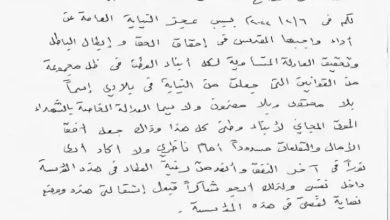 لكم فى ٢٠٢٢/١٠/٦ بسبب عجز النيابة العامة عن
أداء واجبها المقدس فى إحقاق الحق و إبطال الباطل
وتحقيق العدالة المتساوية لكل أبناء الوطن فى ظل مجموعة
من القوانين التى جعلت من النيابة فى بلادى إسماً
بلا محتوى وبلا مضمون ولا سيما العدالة الخاصة بالشهداء
الموت المجانى لأبناء وطنى كل هذا وذاك جعل أفق
الآمال والتطلعات مسدوداً أمام ناظرى ولا أكاد أرى
نوراً فى آخر النفق رغبة العطاء فى هذه المؤسسة
داخل نفسى ولذلك أرجو شاكراً قبول إستقالتى هذه ووضع
نهاية لقصتى فى هذه المؤسسة .